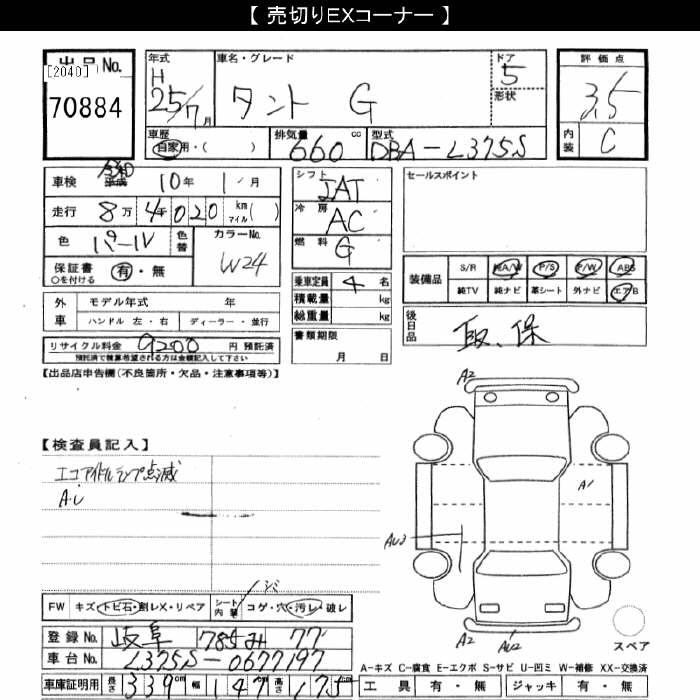 【 売切りEXコーナー 】
出品No.
[2040]
70884
年式 H 25/7月
車名・グレード タント G
ドア 5
形状
評価点 3.5
内装 C
車歴 自家用・( )
排気量 660 cc
型式 DBA-L375S
車検 令和 10年 1月
走行 8万4千020 km マイル( )
色 パール 色替
カラーNo. W24
保証書 有・無
○を付ける
シフト IAT
冷房 AC
燃料 G
乗車定員 4 名
積載量 kg
総重量 kg
書類期限 月 日
セールスポイント
装備品 S/R 純A/W P/S P/W ABS
純TV 純ナビ 革シート 外ナビ エアB
後日品 取、保
外車 モデル年式 年
ハンドル 左・右 ディーラー・並行
リサイクル料金 9200 円 預託済
預託済で検算希望される方は金額記入して下さい
【出品店申告欄(不良箇所・欠品・注意事項等)】
【検査員記入】
エコアイドルランプ点滅
A・U
A2
A1
AU3
A2
AU2
スペア
FW キズ・トビ石・割レX・リペア シート内装 コゲ・穴・汚レ・破レ
シミ
登録No. 岐阜 785 み 77
車台No. L375S-0677197
車庫証明用 長さ 339cm 幅 147cm 高さ 175cm
A-キズ C-腐食 E-エクボ S-サビ U-凹ミ W-補修 XX-交換済
工具 有・無 ジャッキ 有・無